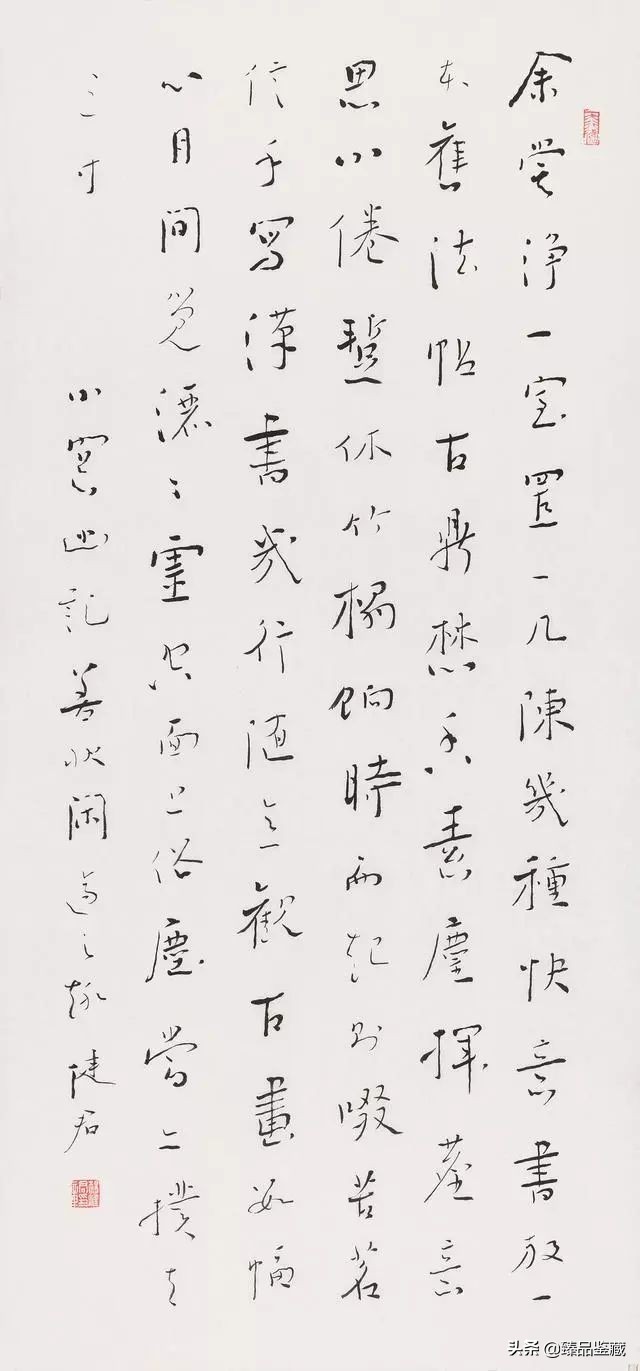 余嘗淨一室置一几陳幾種快意書放一
本舊法帖古鼎焚香素麈揮塵意
思小倦暫休竹榻餉時而起則啜苦茗
信手寫漢書幾行隨意觀古畫數幅
心目間覺灑〻靈空面上俗塵當亦撲去
三寸
小窗幽記善狀閑適之趣 君
头条 @臻品鉴藏